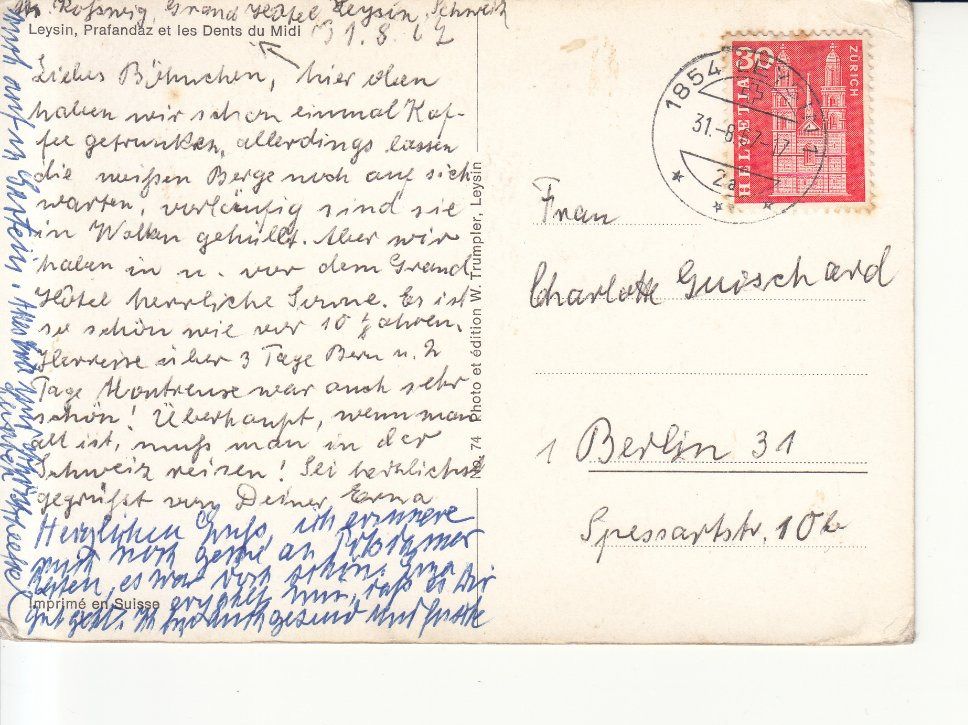 Roßweig, Grand Hôtel, Leysin, Schweiz
Leysin, Prafandaz et les Dents du Midi
31.8.67
Liebes Böhnchen, hier oben
haben wir schon einmal Kaf-
fee getrunken, allerdings lassen
die weißen Berge noch auf sich
warten, vorläufig sind sie
in Wolken gehüllt. Aber wir
haben in u. vor dem Grand
Hôtel herrliche Sonne. Es ist
so schön wie vor 10 Jahren.
Herreise über 3 Tage Bern u. 2
Tage Montreux war auch sehr
schön! Überhaupt, wenn man
alt ist, muß man in der
Schweiz reisen! Sei herzlichst
gegrüßt von Deiner Erna
Herzlichen Gruß, ich erinnere
mich noch gerne an
Zeiten, es war doch schön. Erna
erzählt mir, daß es Dir
gut geht. Ich bin auch gesund und
Imprimé en Suisse
No. 74 Photo et édition W. Trumpler, Leysin
1854 LEYSIN 1
31.-8.67-17
2a
30
HELVETIA
ZÜRICH
Frau
Charlotte Guischard
1 Berlin 31
Spessartstr. 10b